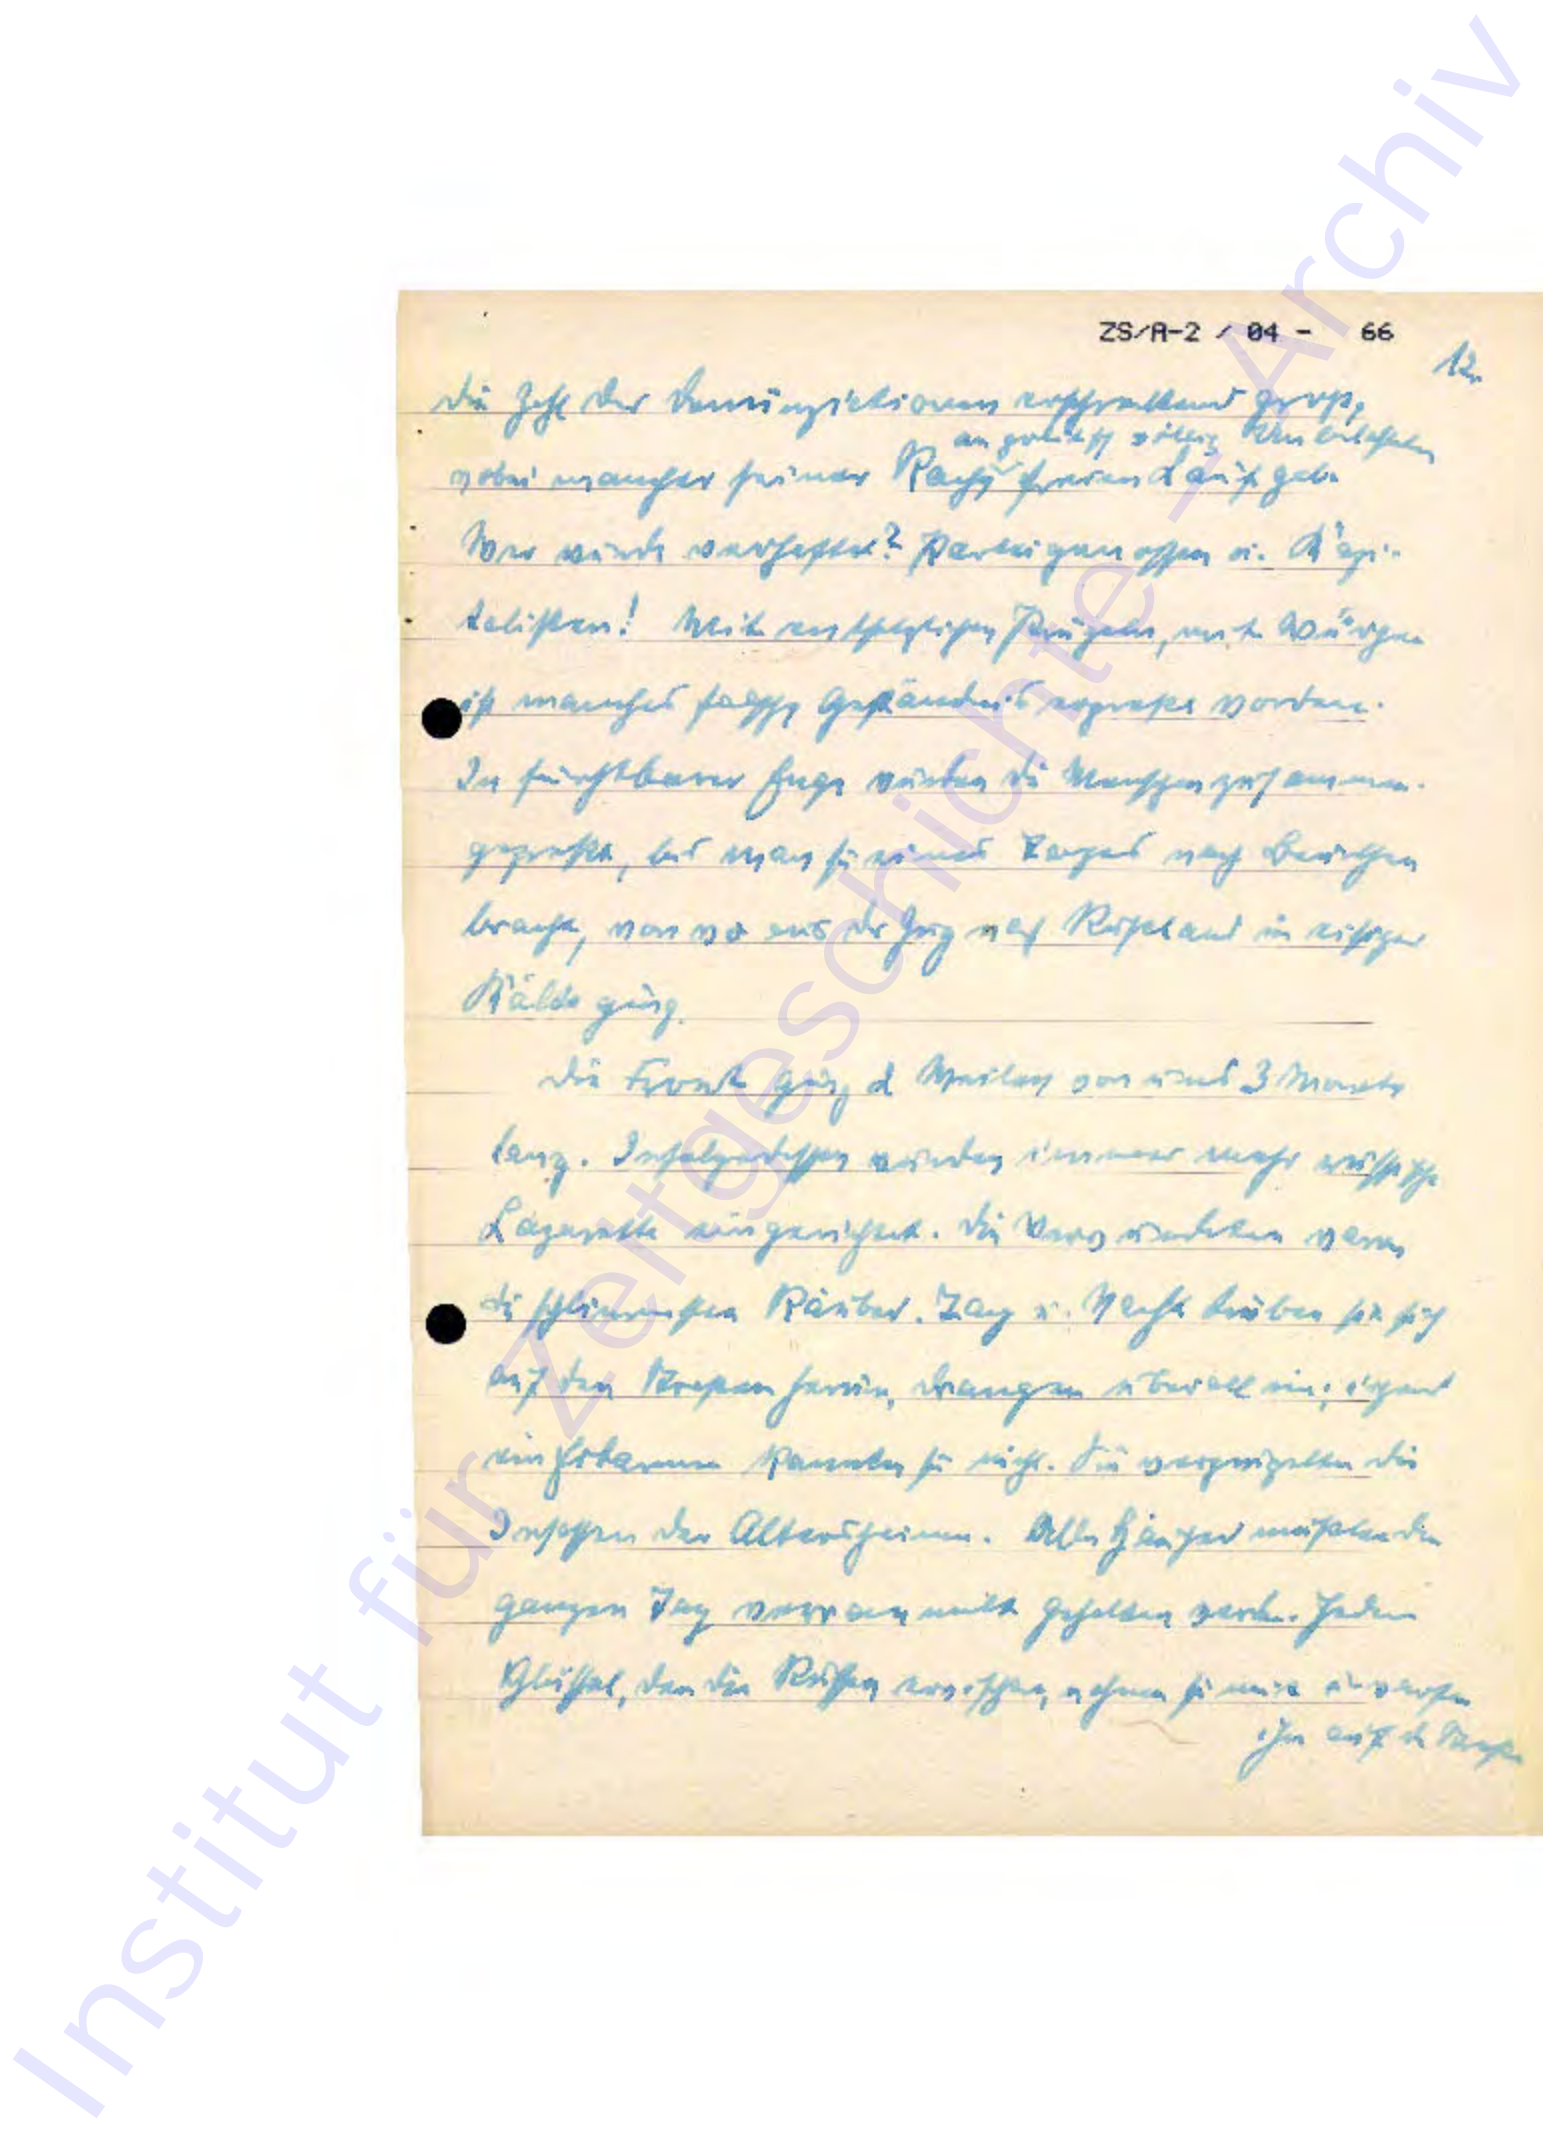 ZS/A-2 / 04 - 66
12.
Die Zahl der Denunziationen erschreckend groß,
an politisch völlig Unbelasteten
wobei mancher seiner Rache freien Lauf gab.
Wer wurde verhaftet? Parteigenossen u. Kapi-
talisten! Mit entsetzlichen Prügeln, mit Würgen
ist manches falsche Geständnis erpreßt worden.
In furchtbarer Enge wurden die Menschen zusammen-
gepreßt, bis man sie eines Tages nach Beuthen
brachte, von wo aus der Zug nach Rußland in eisiger
Kälte ging.
Die Front ging 2 Meilen von uns 3 Monate
lang. Infolgedessen wurden immer mehr russische
Lazarette eingerichtet. Die Verwundeten waren
die schlimmsten Räuber. Tag u. Nacht trieben sie sich
auf den Straßen herum, drangen überall ein, irgend
ein Erbarmen kannten sie nicht. Sie
Insassen der Altersheime. Alle Häuser mußten den
ganzen Tag gehalten werden. Jeden
Schlüssel, den die Russen erwischten, nahmen sie mit u. warfen
ihn auf die Straße
Institut für Zeitgeschichte - Archiv